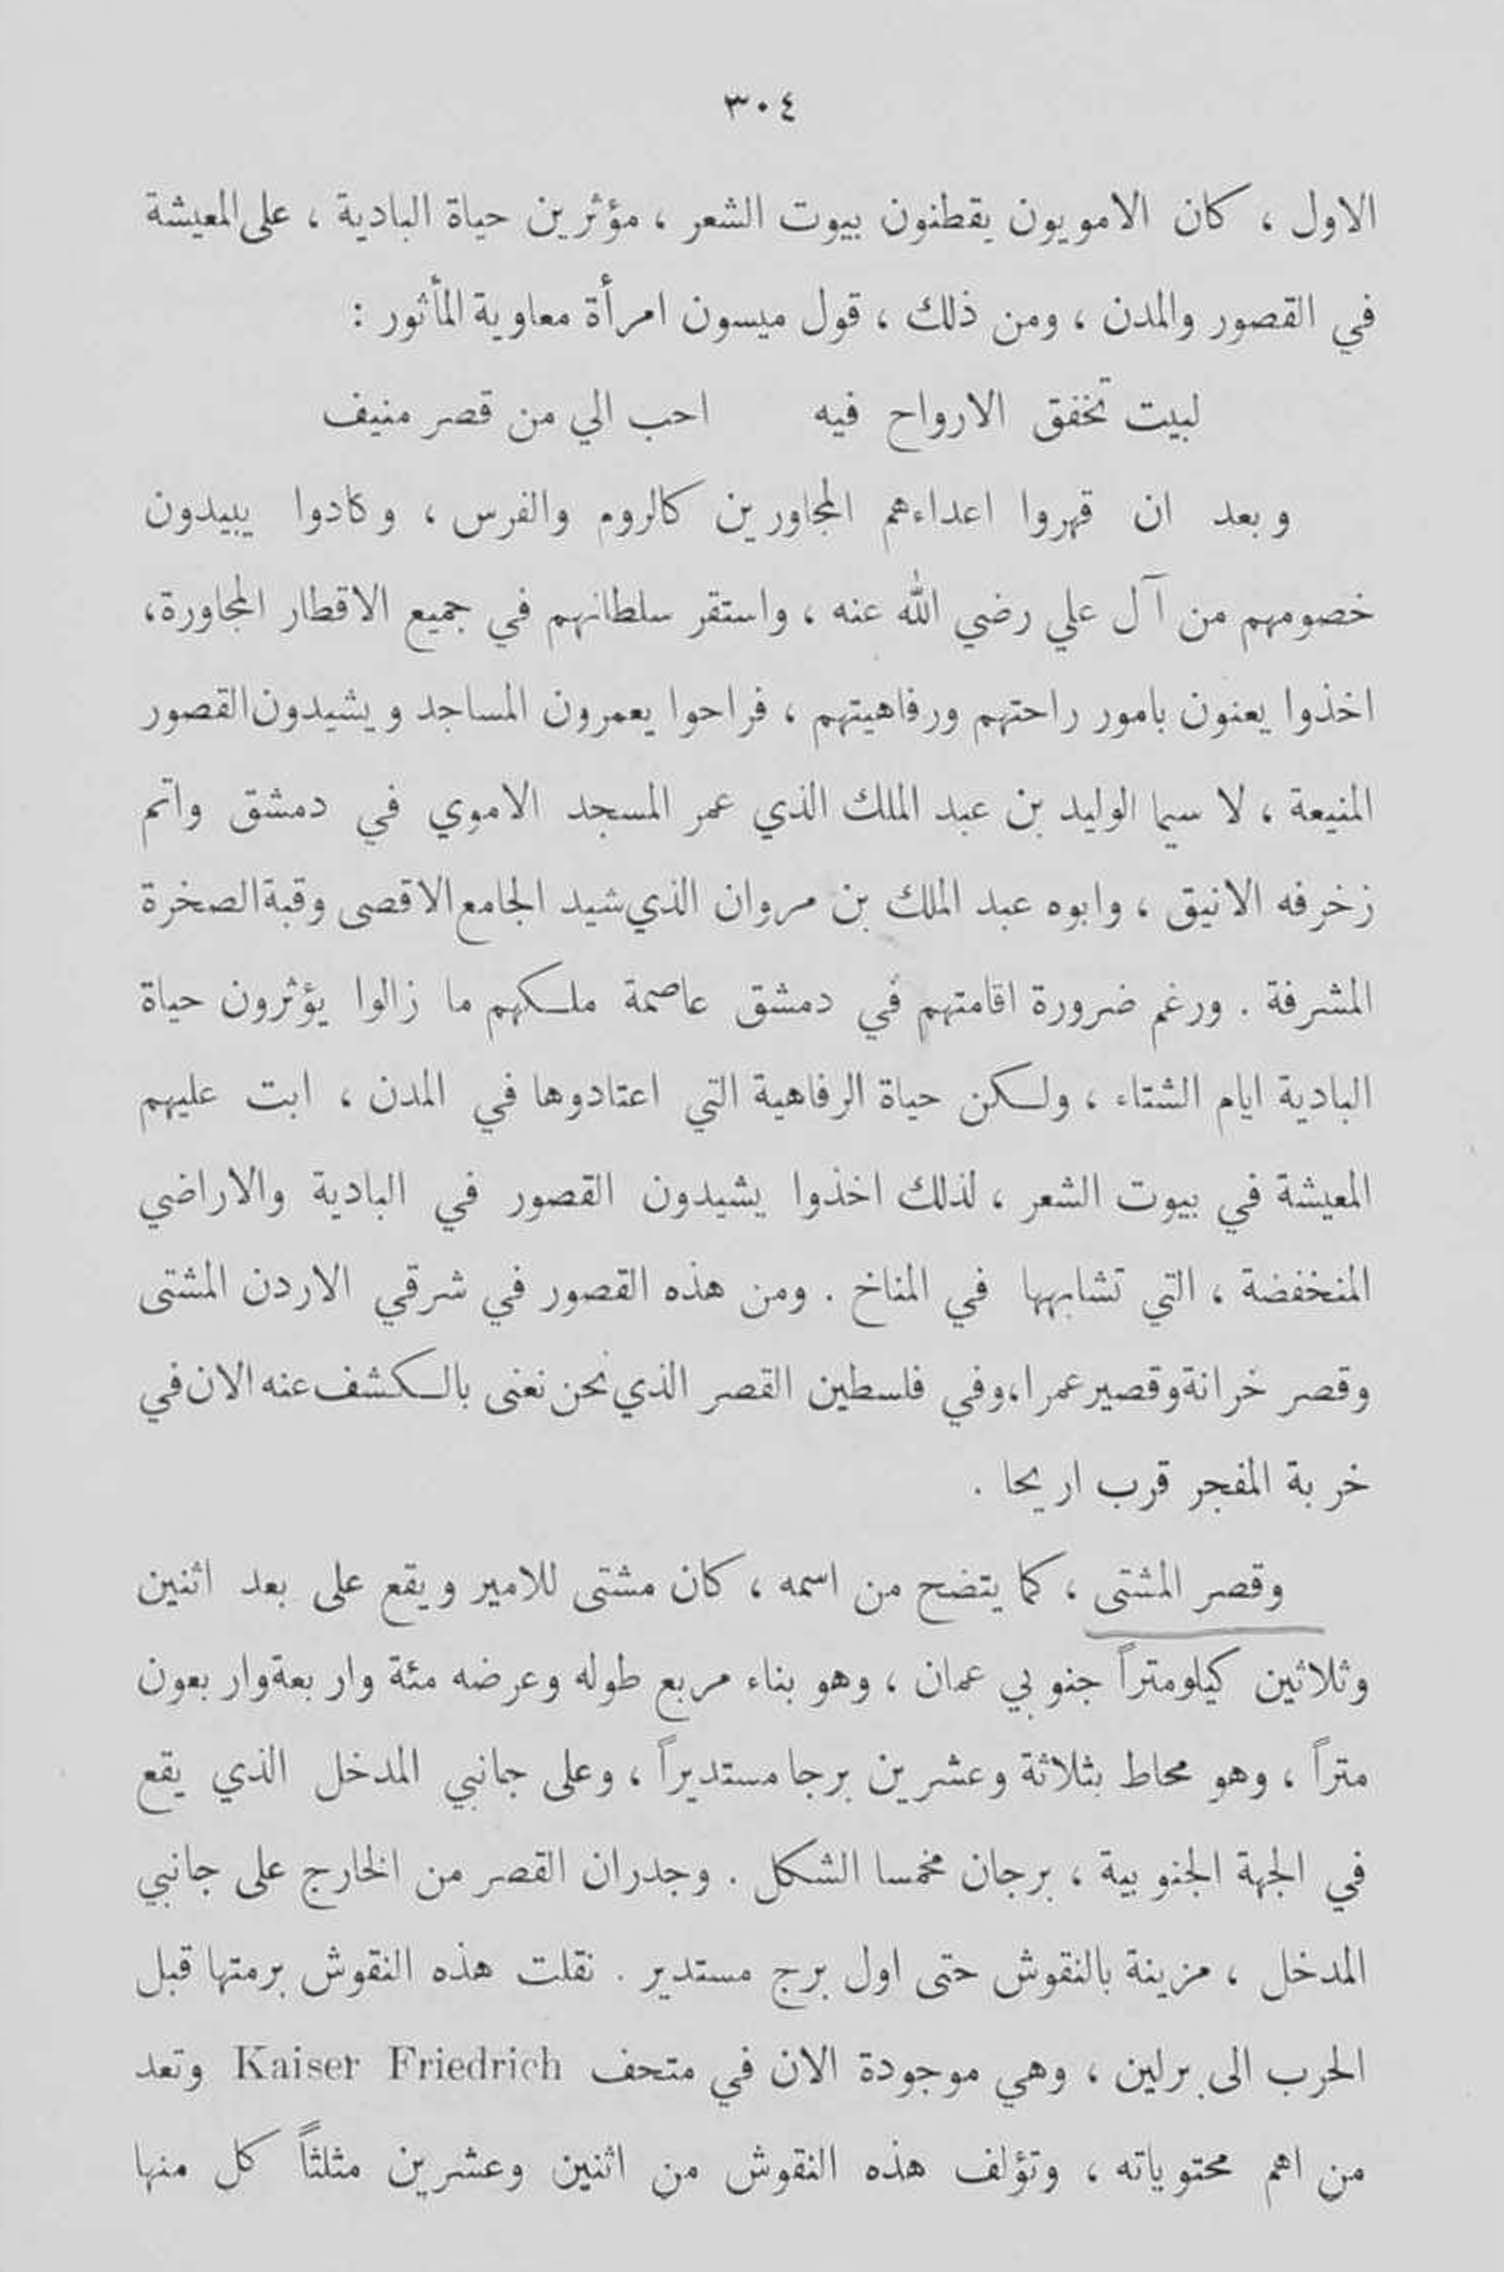 ٣٠٤
الاول ، كان الامويون يقطنون بيوت الشعر ، مؤثرين حياة البادية ، على المعيشة
في القصور والمدن ، ومن ذلك ، قول ميسون امرأة معاوية المأثور :
لبيت تخفق الارواح فيه احب الي من قصر منيف
وبعد ان قهروا اعداءهم المجاورين كالروم والفرس ، وكادوا يبيدون
خصومهم من آل علي رضي الله عنه ، واستقر سلطانهم في جميع الاقطار المجاورة،
اخذوا يعنون بامور راحتهم ورفاهيتهم ، فراحوا يعمرون المساجد ويشيدون القصور
المنيعة ، لا سيما الوليد بن عبد الملك الذي عمر المسجد الاموي في دمشق واتم
زخرفه الانيق ، وابوه عبد الملك بن مروان الذي شيد الجامع الاقصى وقبة الصخرة
المشرفة . ورغم ضرورة اقامتهم في دمشق عاصمة ملكهم ما زالوا يؤثرون حياة
البادية ايام الشتاء ، ولكن حياة الرفاهية التي اعتادوها في المدن ، ابت عليهم
المعيشة في بيوت الشعر ، لذلك اخذوا يشيدون القصور في البادية والاراضي
المنخفضة ، التي تشابهها في المناخ . ومن هذه القصور في شرقي الاردن المشتى
وقصر خرانة وقصير عمرا، وفي فلسطين القصر الذي نحن نعنى بالكشف عنه الان في
خربة المفجر قرب اريحا .
وقصر المشتى ، كما يتضح من اسمه ، كان مشتى للامير ويقع على بعد اثنين
وثلاثين كيلومتراً جنوبي عمان ، وهو بناء مربع طوله وعرضه مئة واربعة واربعون
متراً ، وهو محاط بثلاثة وعشرين برجا مستديراً ، وعلى جانبي المدخل الذي يقع
في الجهة الجنوبية ، برجان مخمسا الشكل . وجدران القصر من الخارج على جانبي
المدخل ، مزينة بالنقوش حتى اول برج مستدير . نقلت هذه النقوش برمتها قبل
الحرب الى برلين ، وهي موجودة الان في متحف Kaiser Friedrich وتعد
من اهم محتوياته ، وتؤلف هذه النقوش من اثنين وعشرين مثلثاً كل منها